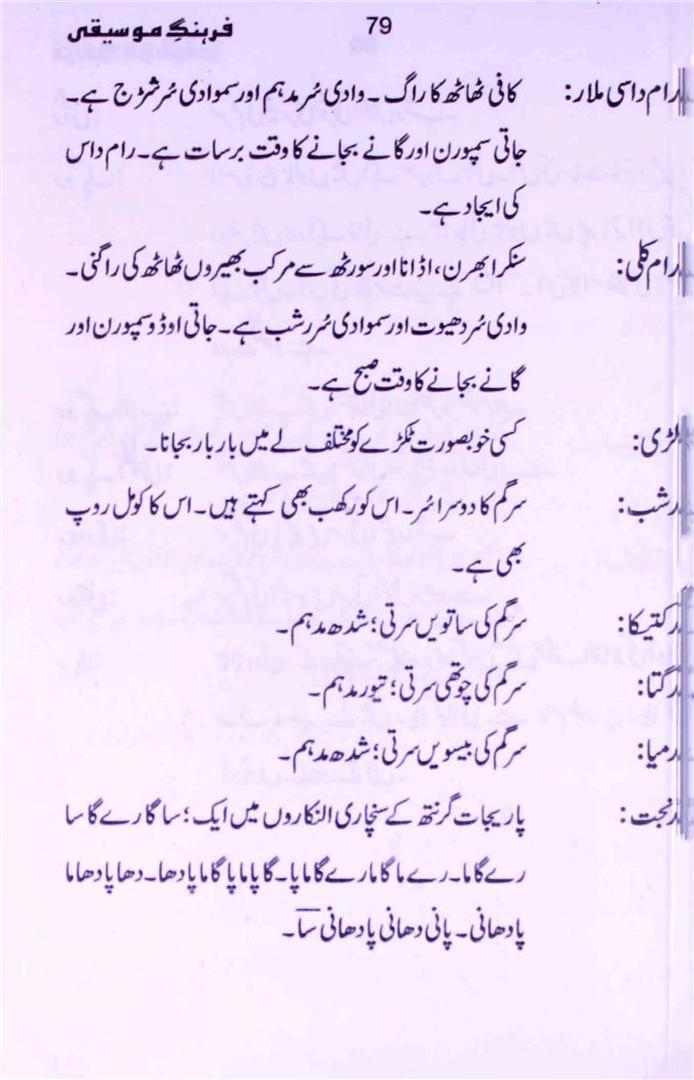 79 فرہنگِ موسیقی
رام داسی ملار: کافی ٹھاٹھ کا راگ۔ وادی سُر مدہم اور سموادی سُر شرْج ہے۔
جاتی سمپورن اور گانے بجانے کا وقت برسات ہے۔ رام داس
کی ایجاد ہے۔
رام کلی: سنکرا بھرن، اڈانا اور سورٹھ سے مرکب بھیروں ٹھاٹھ کی راگنی۔
وادی سُر دھیوت اور سموادی سُر رشب ہے۔ جاتی اوڈو سمپورن اور
گانے بجانے کا وقت صبح ہے۔
لڑی: کسی خوبصورت ٹکڑے کو مختلف لے میں بار بار بجانا۔
رشب: سرگم کا دوسرا سُر۔ اس کو رکھب بھی کہتے ہیں۔ اس کا کومل روپ
بھی ہے۔
رکتیکا: سرگم کی ساتویں سرتی؛ شدھ مدہم۔
رگتا: سرگم کی چوتھی سرتی؛ تیور مدہم۔
رمیا: سرگم کی بیسویں سرتی؛ شدھ مدہم۔
رنجت: پاریجات گرنتھ کے سنچاری النکاروں میں ایک؛ سا گا رے گا سا
رے گا ما۔ رے ما گا ما رے گا ما پا۔ گا پا ما پا گا ما پا دھا۔ دھا پا دھا ما
پا دھا نی۔ پا نی دھا نی پا دھا نی سا۔